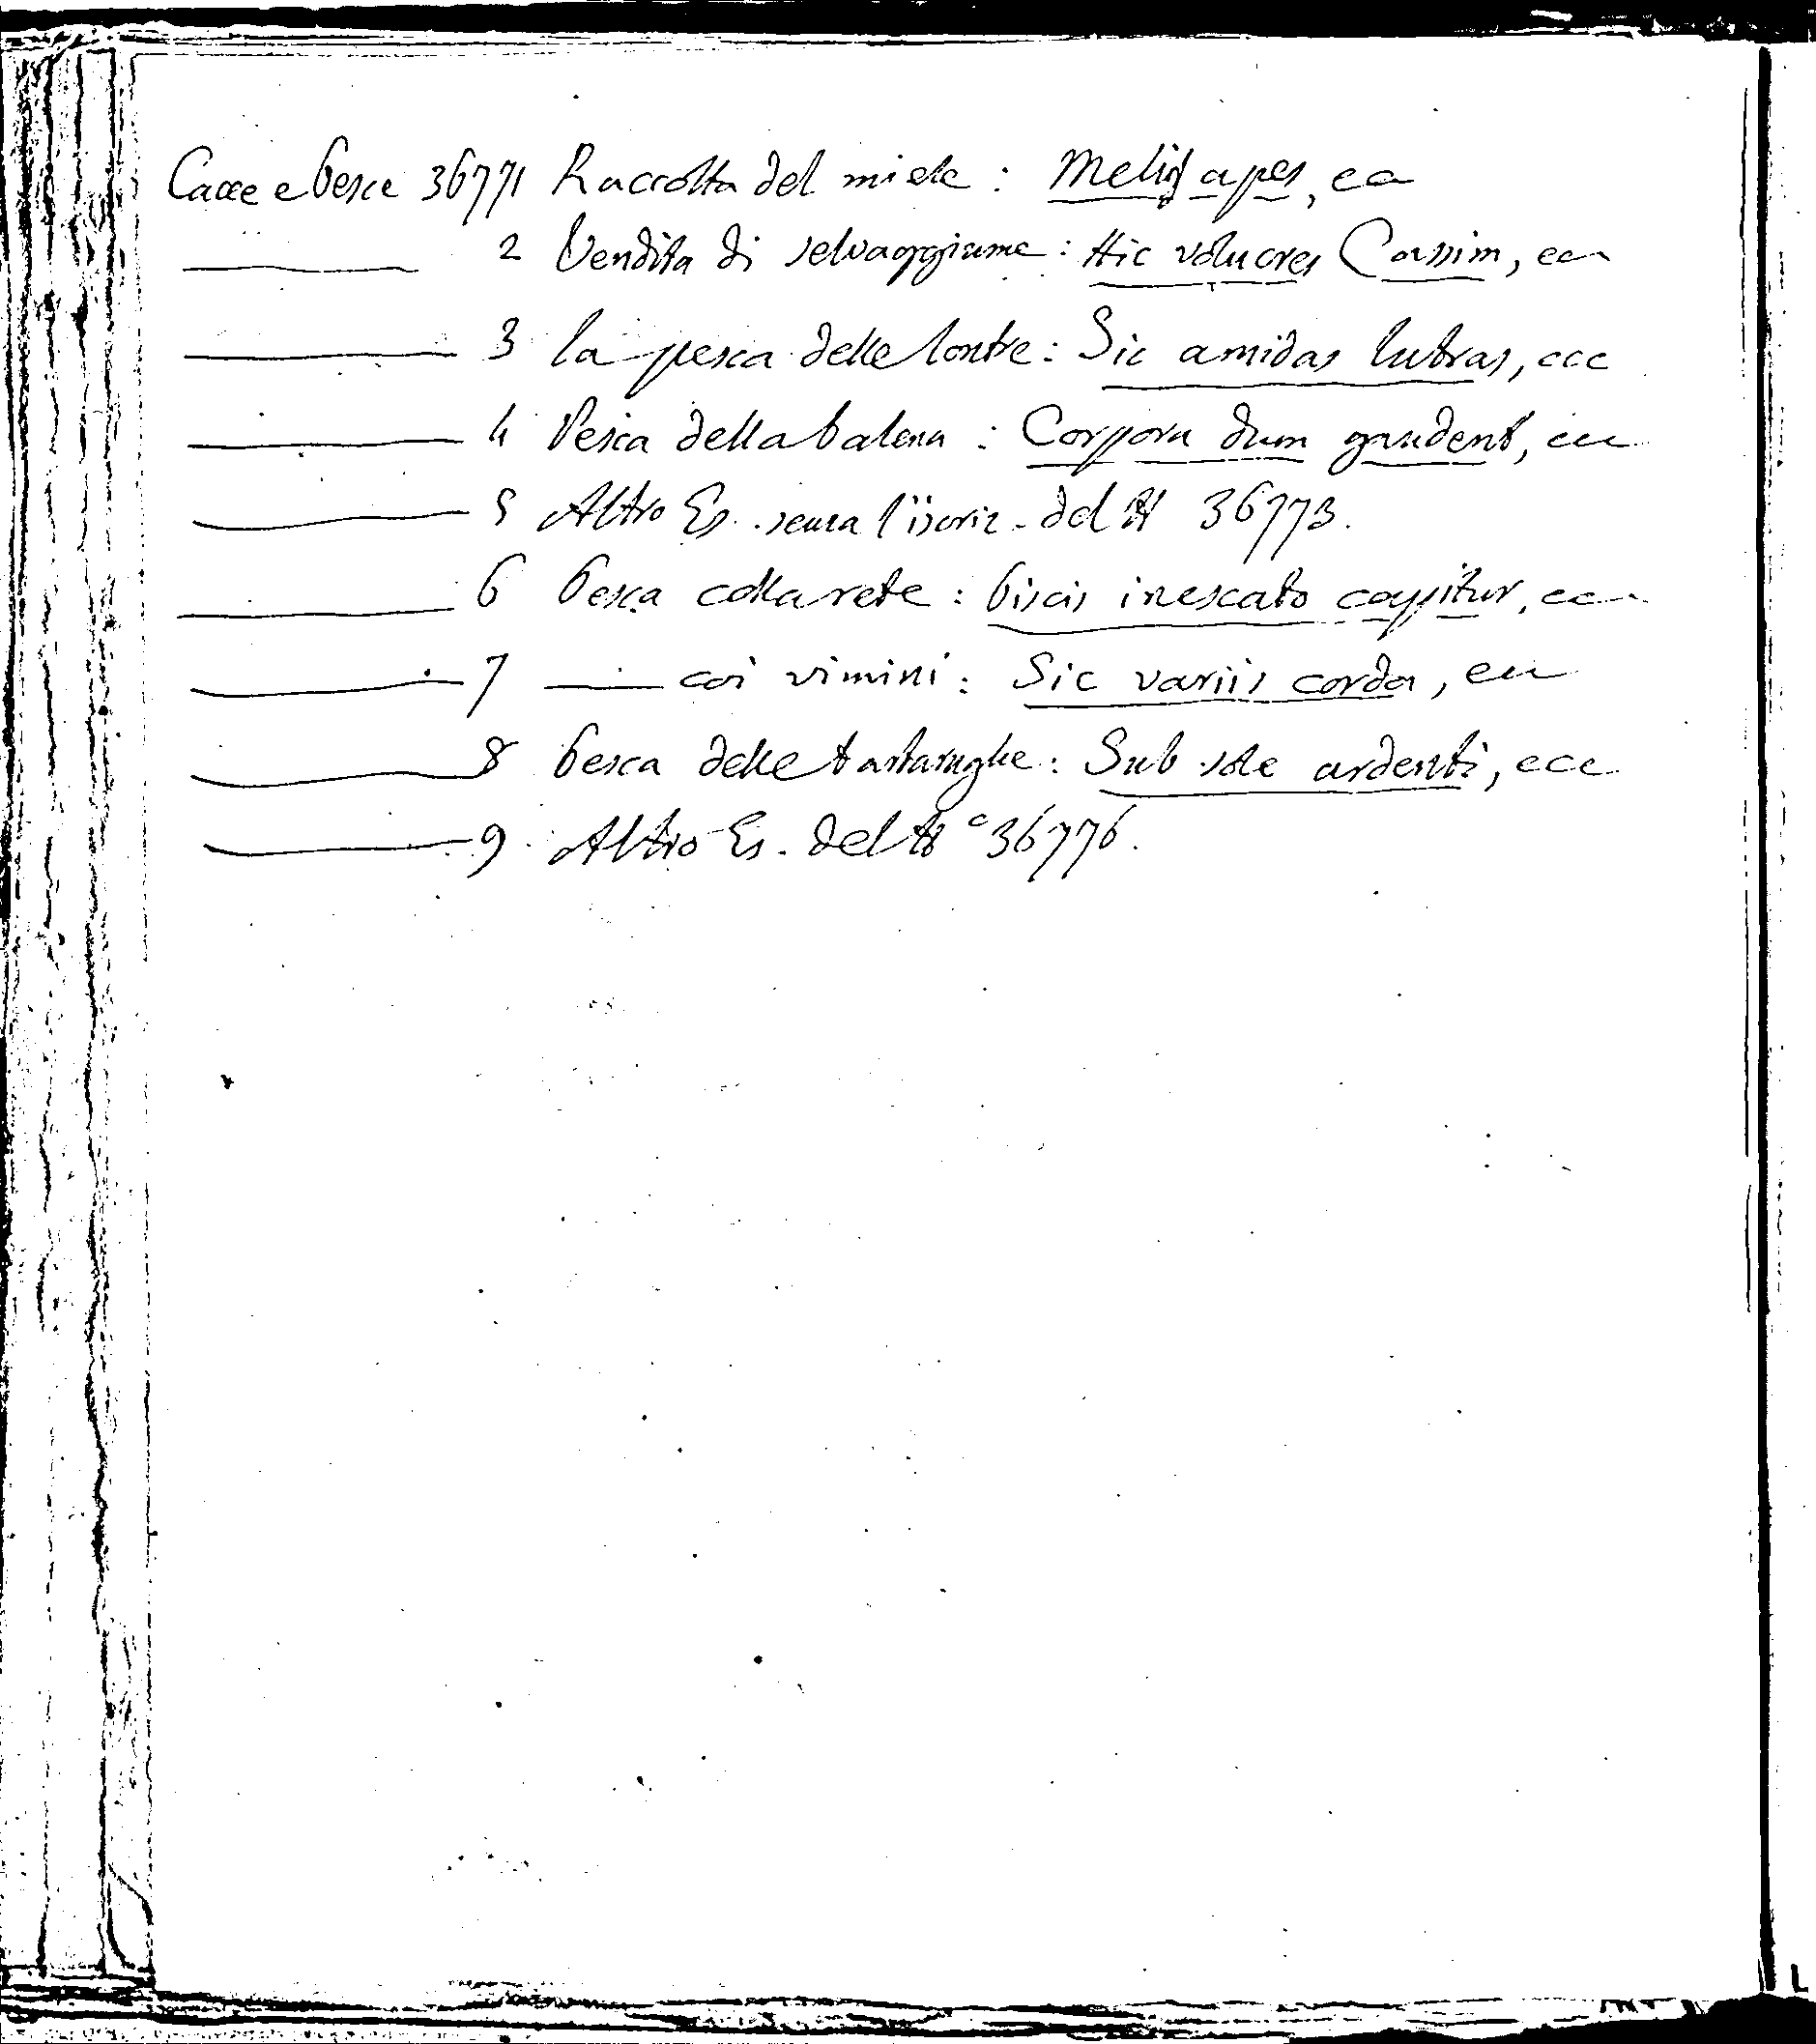 Cacce e Pesce 36771 Raccolta del miele : Melis apes, ecc
——— 2 Vendita di selvaggiume : Hic volucres Cassim, ecc
——— 3 la pesca delle lontre : Sic amidas lutras, ecc
——— 4 Pesca della balena : Corpora dum gaudent, ecc
——— 5 Altro Es. senza l'iscriz. del N 36773.
——— 6 Pesca colla rete : Piscis inescato cappitur, ecc
——— 7 ——— coi vimini : Sic variis corda, ecc
——— 8 Pesca delle tartarughe : Sub sole ardenti, ecc
——— 9 Altro Es. del N° 36776.